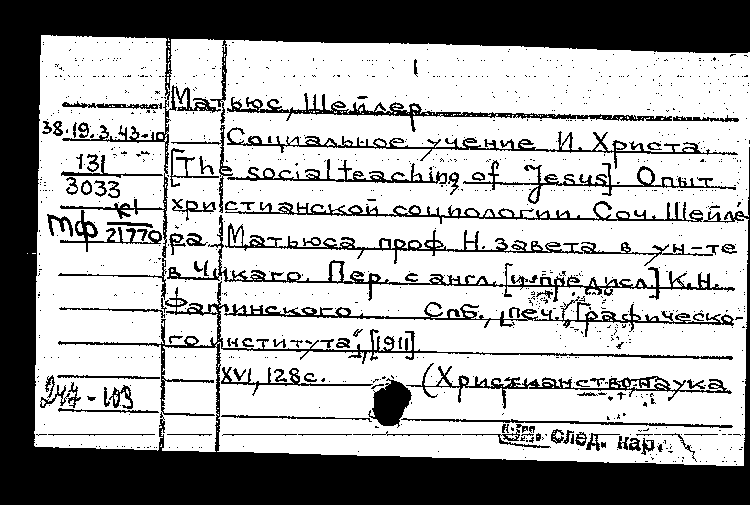 1
Матьюс, Шейлер
38.19.3.43-10 Социальное учение И. Христа
131 [The social teaching of Jesus]. Опыт
3033
христианской социологии. Соч. Шейле-
тф к1 21770 ра Матьюса, проф. Н. завета в ун-те
в Чикаго. Пер. с англ. [и предисл.] К.Н.
Фаминского. Спб., „печ. Графическо-
го института“, [1911]
XVI, 128 с. (Христианство, наука
247-103
след. кар.